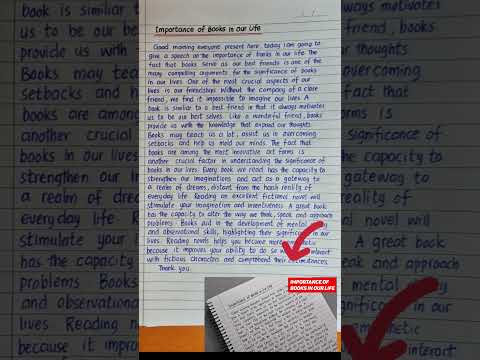 Importance of Books in our Life
Good morning everyone present here, today I am going to
give a speech on the importance of books in our life. The
fact that books serve as our best friends is one of the
many compelling arguments for the significance of books
in our lives. One of the most crucial aspects of our
lives is our friendships. Without the company of a close
friend, we find it impossible to imagine our lives. A
book is similar to a best friend in that it always motivates
us to be our best selves. Like a wonderful friend, books
provide us with the knowledge that expand our thoughts.
Books may teach us a lot, assist us in overcoming
setbacks and help us mold our minds. The fact that
books are among the most innovative art forms is
another crucial factor in understanding the significance of
books in our lives. Every book we read has the capacity to
strengthen our imaginations and act as a gateway to
a realm of dreams, distant from the harsh reality of
everyday life. Reading an excellent fictional novel will
stimulate your imagination and inventiveness. A great book
has the capacity to alter the way we think, speak and approach
problems. Books aid in the development of mental
and observational skills, highlighting their significance in our
lives. Reading novels helps you become more
because it improves your ability to do so interact
with fictious characters and comprehend their circumstances.
Thank you.
IMPORTANCE OF
BOOKS IN OUR LIFE
book is similar t
us to be our be
provide us with
Books may tea
setbacks and he
books are among
another crucial
books in our lives
strengthen our im
a realm of drea
everyday life. R
stimulate your
has the capacity
problems Books
and observationa
lives Reading no
because it impro
always motivates
friend, books
our thoughts
overcoming
fact that
forms is
significance of
the capacity to
gateway to
reality of
novel will
A great book
eak and approach
mental
ificance in our
interact